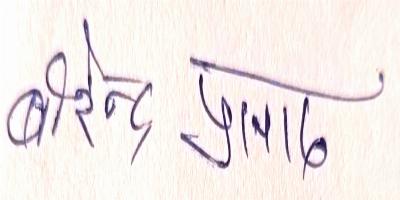 वीरेन्द्र प्रसाद